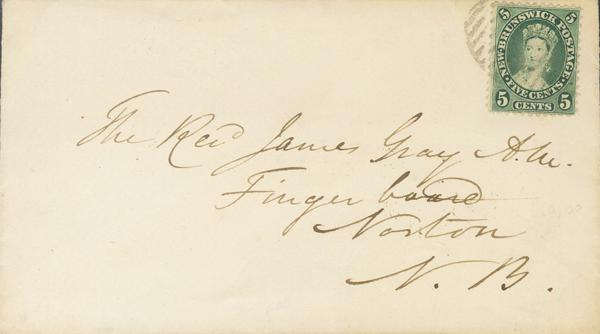 5 5
NEW-BRUNSWICK POSTAGE
FIVE CENTS
5 CENTS 5
The Revd James Gray A.M.
Finger board
Norton
N. B.